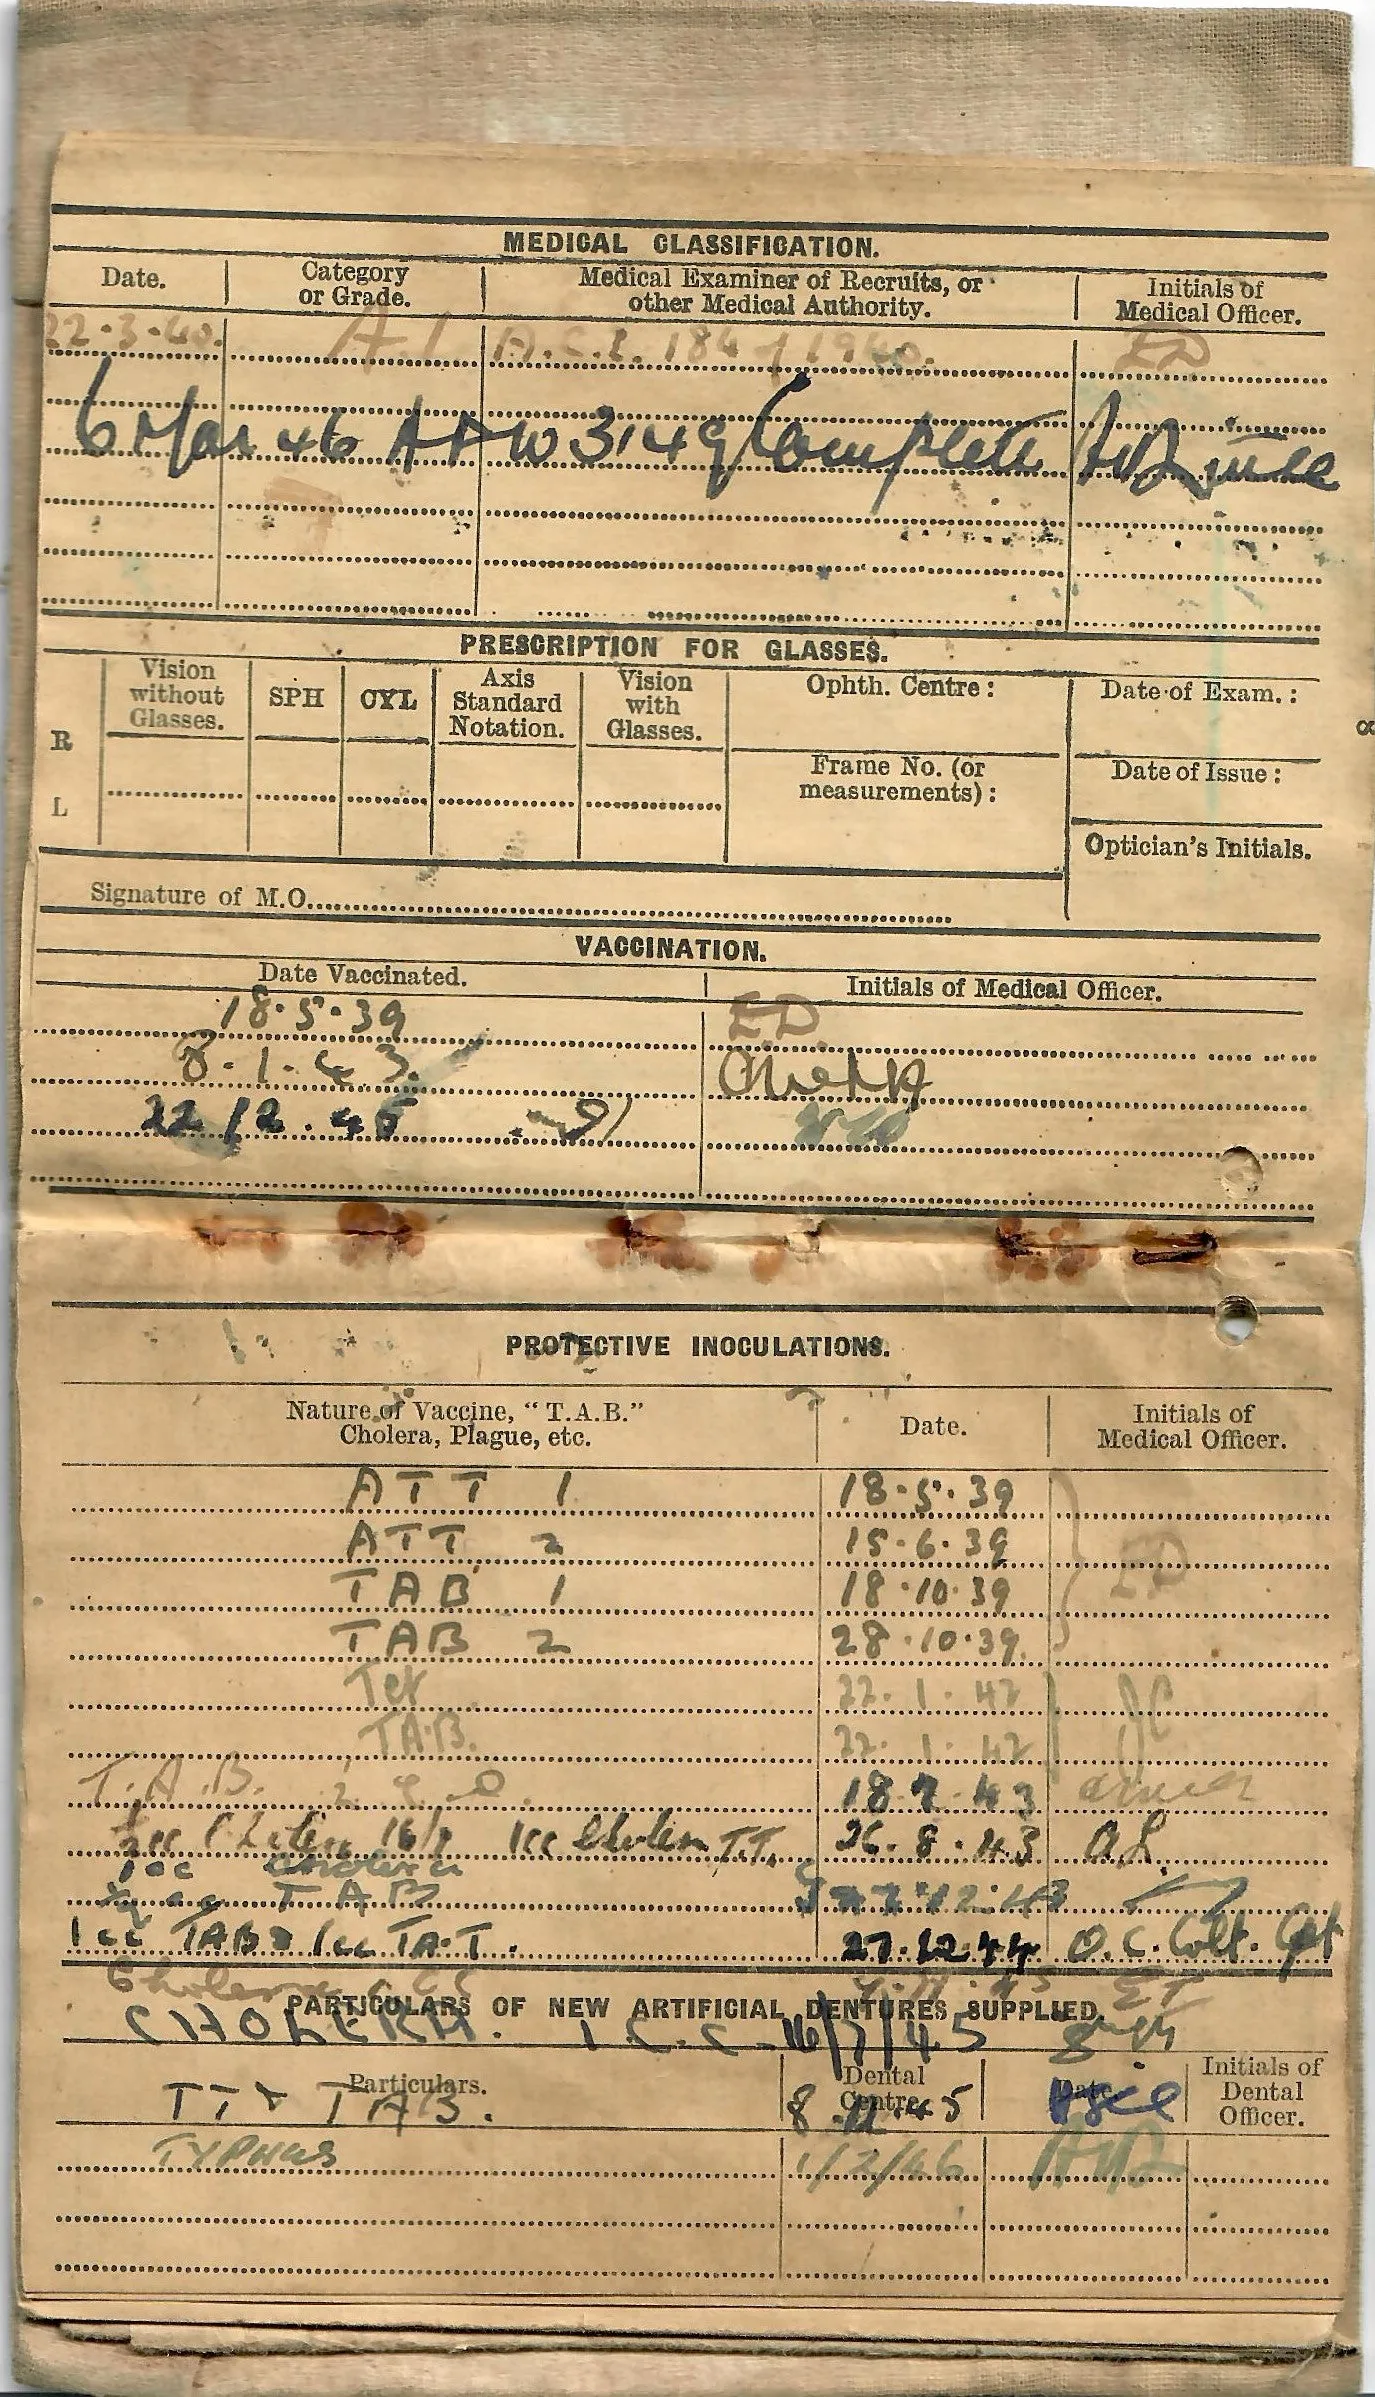 MEDICAL CLASSIFICATION.
Date. Category or Grade. Medical Examiner of Recruits, or other Medical Authority. Initials of Medical Officer.
22.3.40. A.1 A.C.I. 184/1940. ED
6 Mar 46 A F W 3149 Complete
PRESCRIPTION FOR GLASSES.
Vision without Glasses. SPH CYL Axis Standard Notation. Vision with Glasses. Ophth. Centre: Date of Exam.:
R
Frame No. (or measurements): Date of Issue:
L
Optician's Initials.
Signature of M.O.
VACCINATION.
Date Vaccinated. Initials of Medical Officer.
18.5.39 E.D.
8.1.43.
22/2.45
PROTECTIVE INOCULATIONS.
Nature of Vaccine, "T.A.B." Cholera, Plague, etc. Date. Initials of Medical Officer.
ATT 1 18.5.39
ATT 2 15.6.39 ED
TAB 1 18.10.39
TAB 2 28.10.39
Tet 22.1.42 JC
TAB. 22.1.42
T.A.B. 18.7.43
1cc Cholera T.T. 26.8.43
1cc Cholera
TAB 12.43
1cc TAB 1cc TA.T. 27.12.44 O.C. Capt
Cholera
PARTICULARS OF NEW ARTIFICIAL DENTURES SUPPLIED.
CHOLERA. 1 C.C. 16/7/45
Particulars. Dental Centre. Date. Initials of Dental Officer.
TT & TAB. 8.11.45
TYPHUS 1/2/46